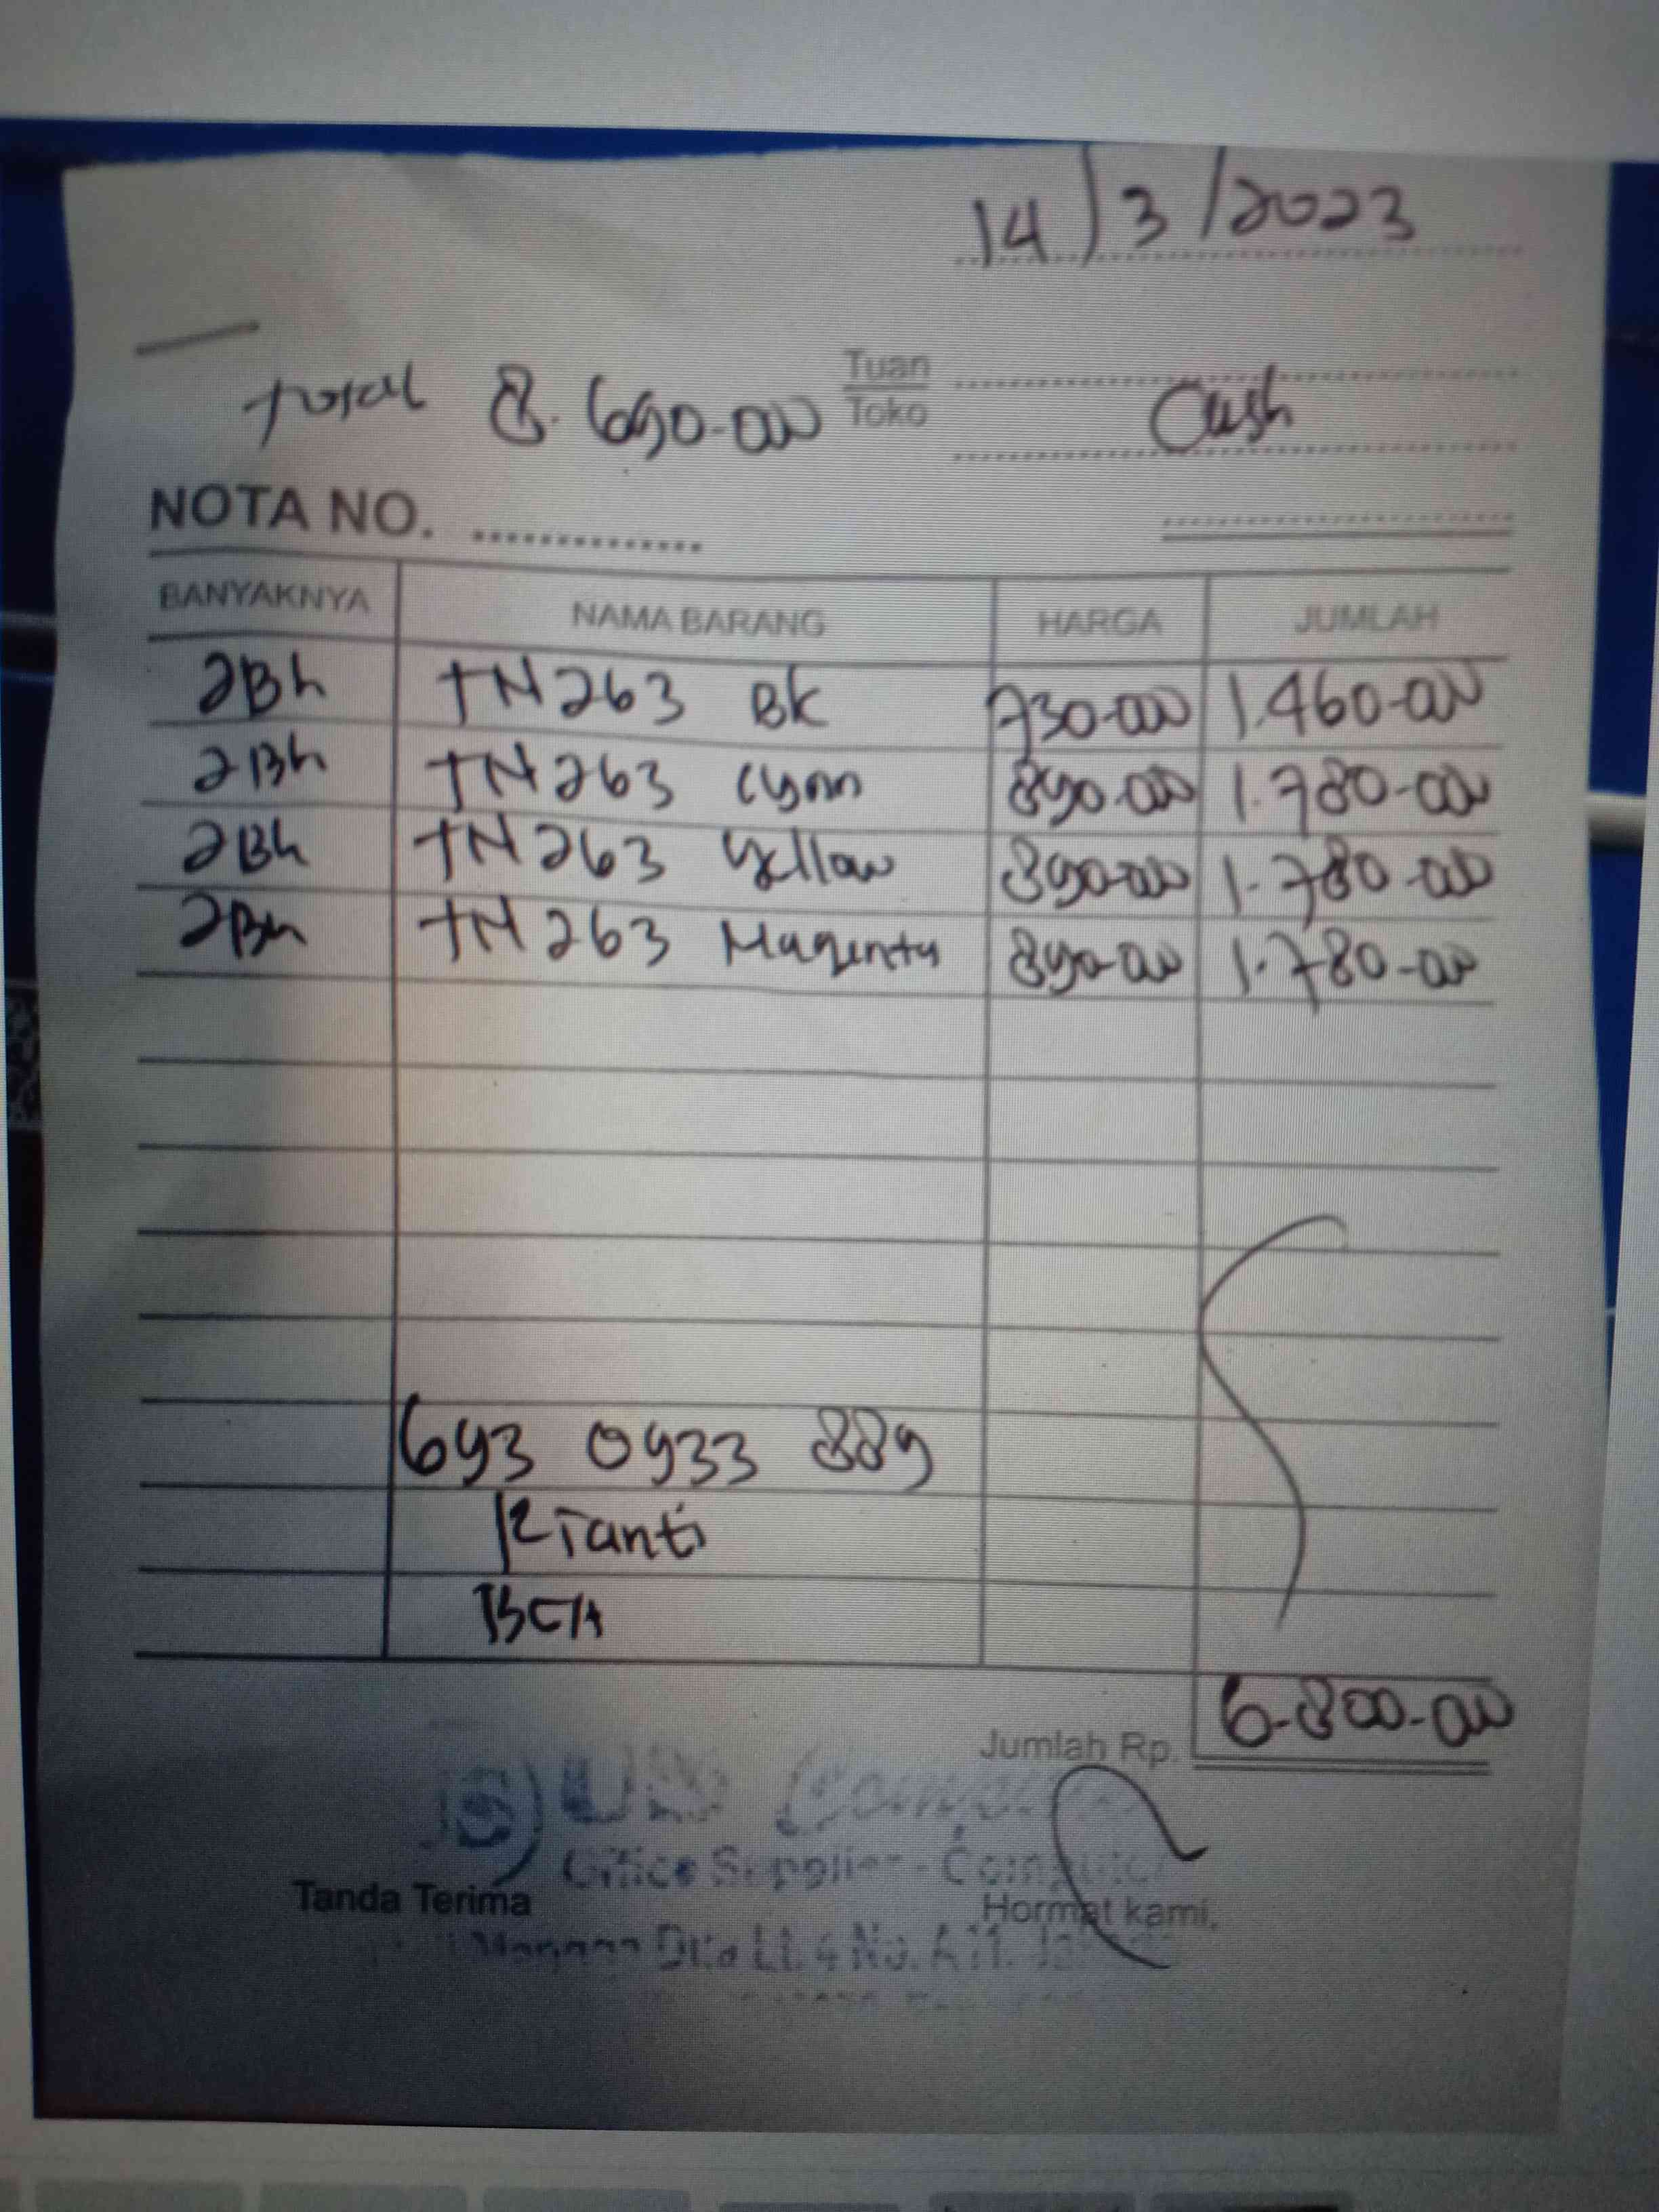 14/3/2023
Total 8.690.000
Tuan
Toko
Cash
NOTA NO. ..............
BANYAKNYA NAMA BARANG HARGA JUMLAH
2Bh TN263 BK 730.000 1.460-000
2Bh TN263 Cyan 890.000 1.780-000
2Bh TN263 Yellow 890-000 1.780-000
2Bh TN263 Magenta 890-000 1.780-000
693 0933 889
BCA
Jumlah Rp. 6.800.000
Office
Tanda Terima
Hormat kami,